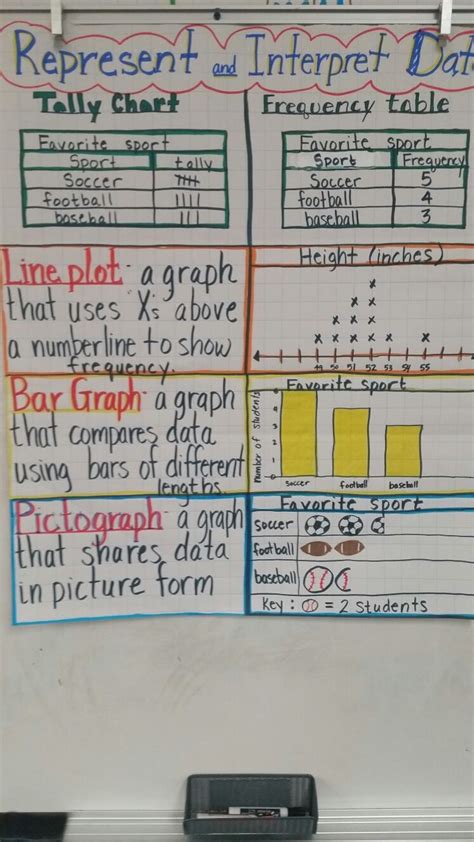 Represent and Interpret Dat
Tally Chart
Favorite sport
Sport tally
Soccer
football
baseball
Frequency table
Favorite sport
Sport Frequency
Soccer 5
football 4
baseball 3
Line plot - a graph
that uses X's above
a numberline to show
frequency.
Height (inches)
49 50 51 52 53 54 55
Bar Graph - a graph
that compares data
using bars of different
lengths.
Favorite sport
Number of students
soccer football baseball
Pictograph - a graph
that shares data
in picture form
Favorite sport
soccer
football
baseball
Key : = 2 students